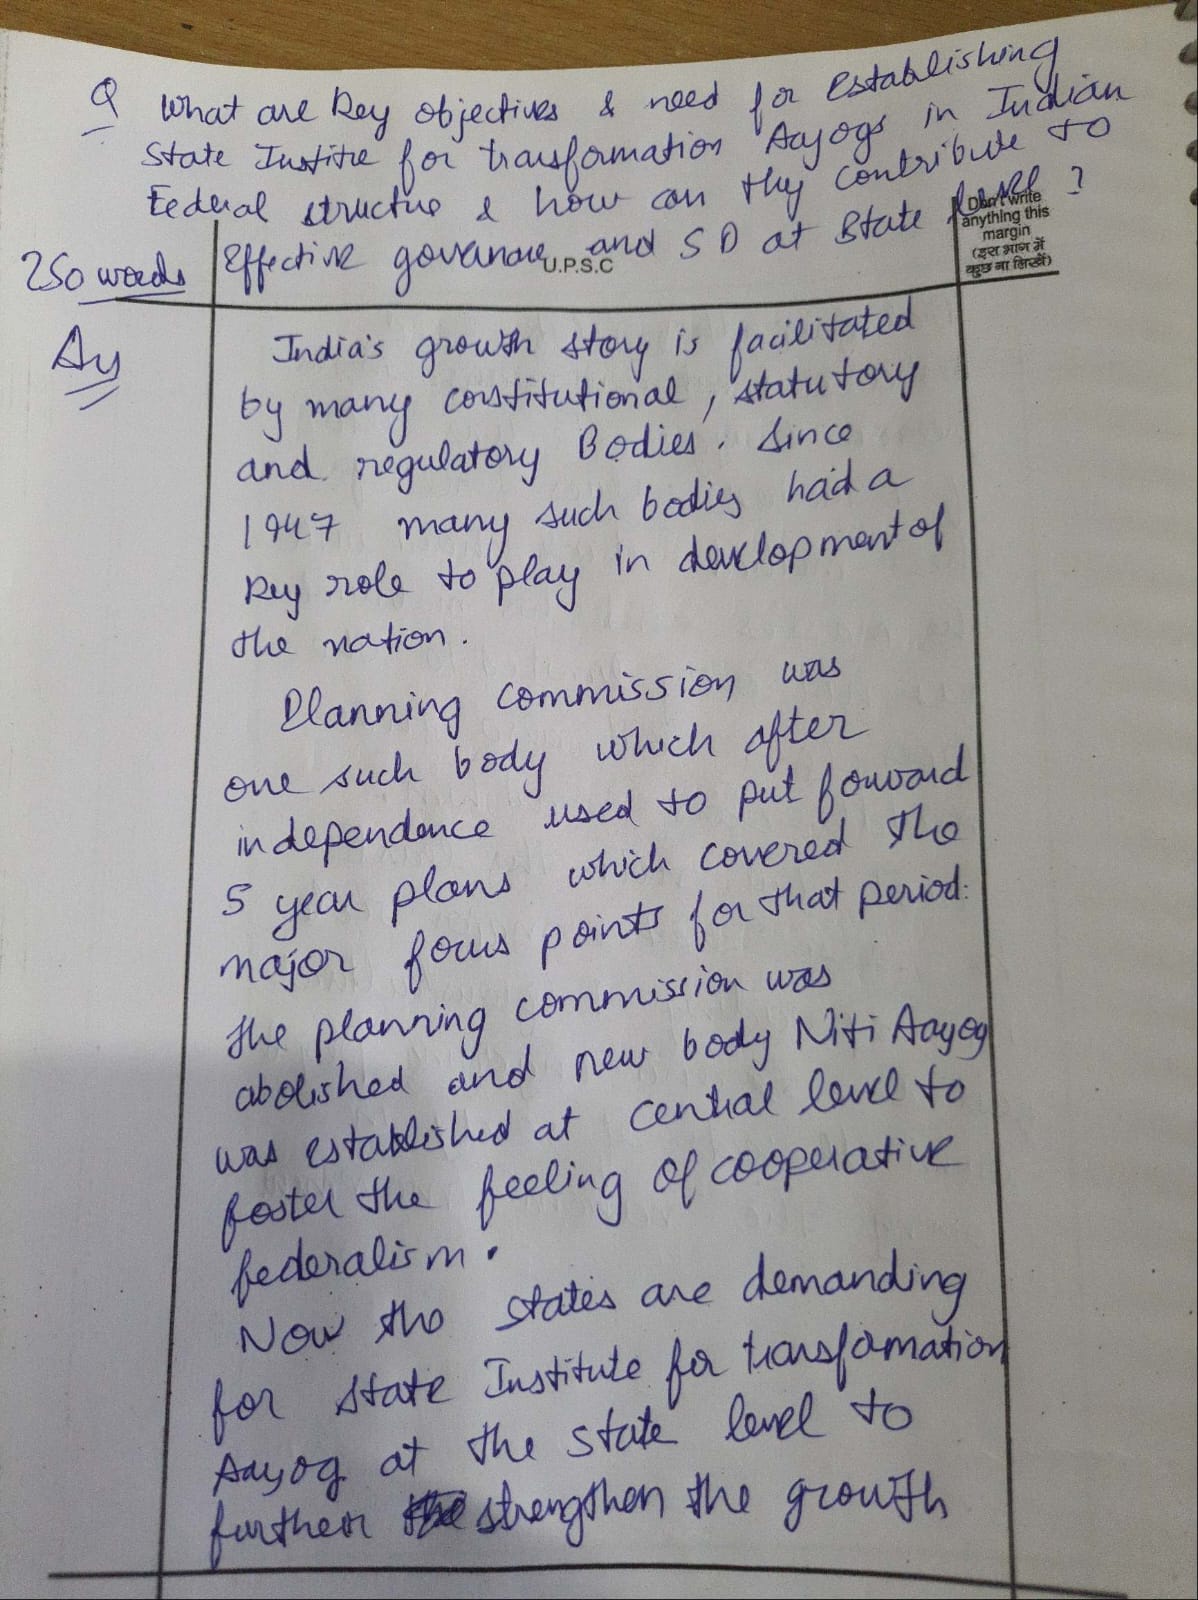 Q What are key objectives & need for establishing
State Institue for transformation Aayogs in Indian
Federal structure & how can they contribute to
Effective governance and S D at state level ?
250 words
U.P.S.C
Don't write
anything this
margin
(इस भाग में
कुछ ना लिखें)
India's growth story is facilitated
by many constitutional, statutory
and regulatory Bodies. Since
1947 many such bodies had a
key role to play in development of
the nation.
Planning commission was
one such body which after
independence used to put forward
5 year plans which covered the
major focus points for that period.
the planning commission was
abolished and new body Niti Aayog
was established at central level to
foster the feeling of cooperative
federalism.
Now the states are demanding
for state Institute for transformation
Aayog at the state level to
further strengthen the growth